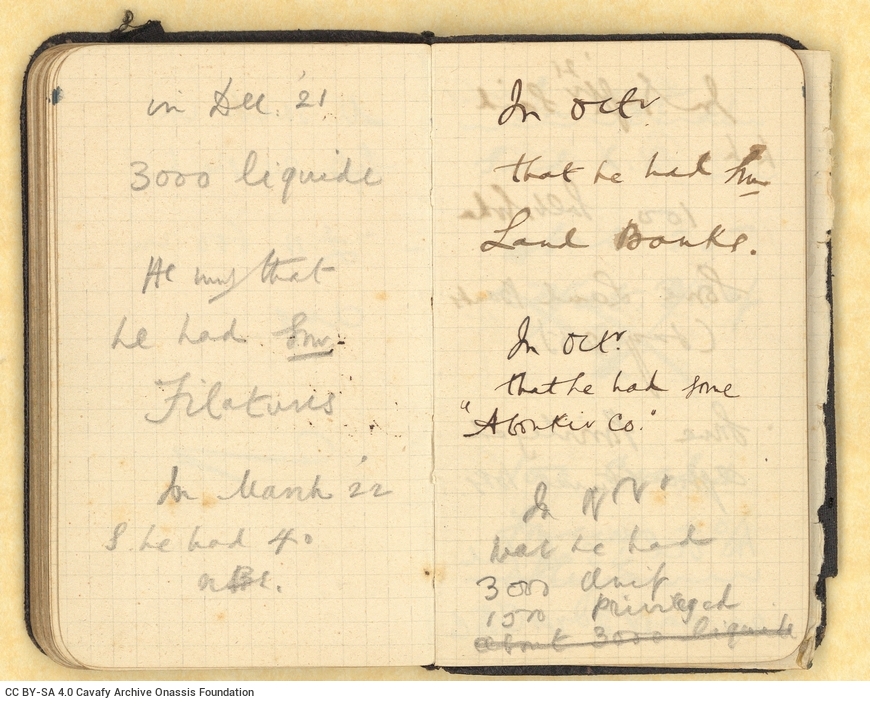 in Dec. '21
3000 liquide
He  that
he had Some
Filatures
In March '22
S. he had 40
NBE.
In Octr
that he had Some
Land Banks.
In Octr.
that he had some
"Aboukir Co."
In Novr
that he had
3000 Unif
1500 privileged
about 3000 liquide
CC BY-SA 4.0 Cavafy Archive Onassis Foundation